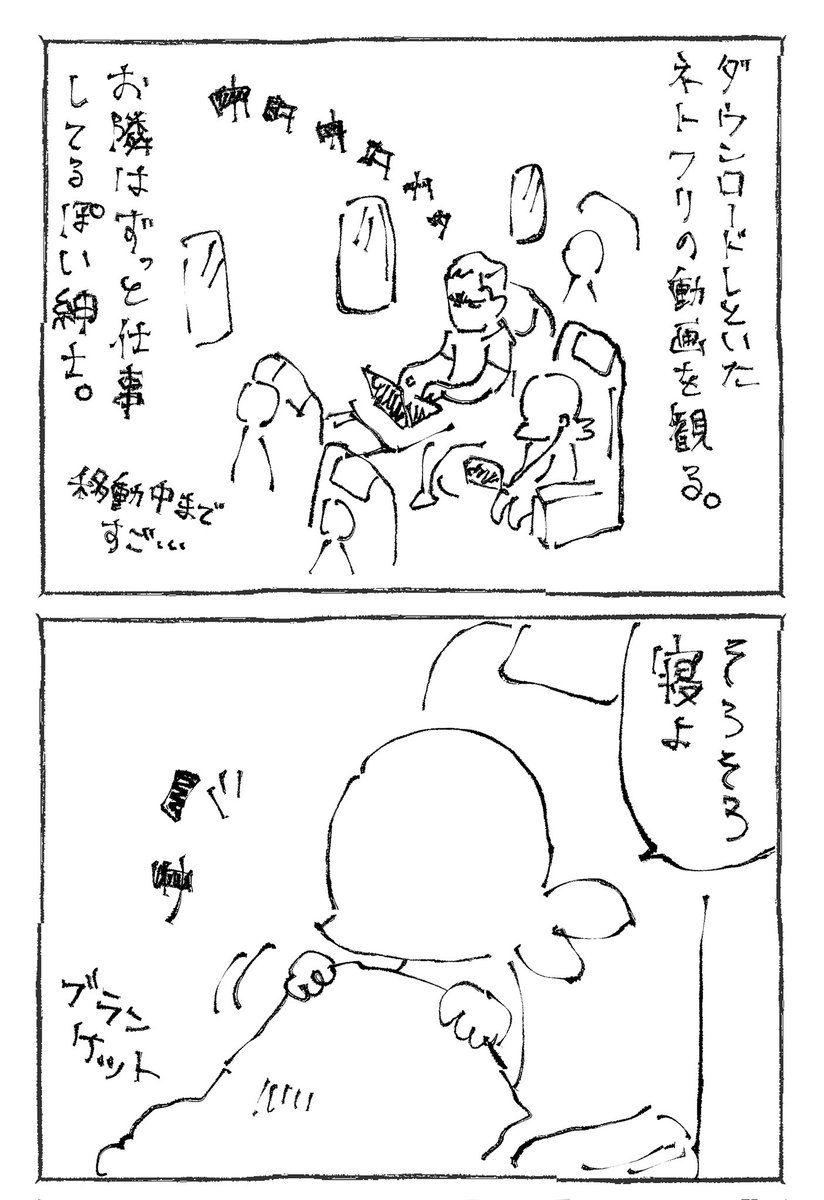 ダウンロードしといた
ネトフリの動画を観る。
お隣はずっと仕事
してるぽい紳士。
移動中まで
すご…
そろそろ
寝よ
ブラン
ケット